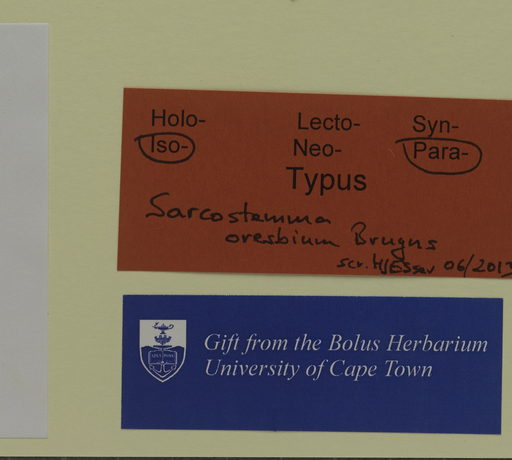 Holo- Lecto- Syn-
Iso- Neo- Para-
Typus
Sarcostemma
oresbium Bruyns
scr. HJEsser 06/2013
Gift from the Bolus Herbarium
University of Cape Town